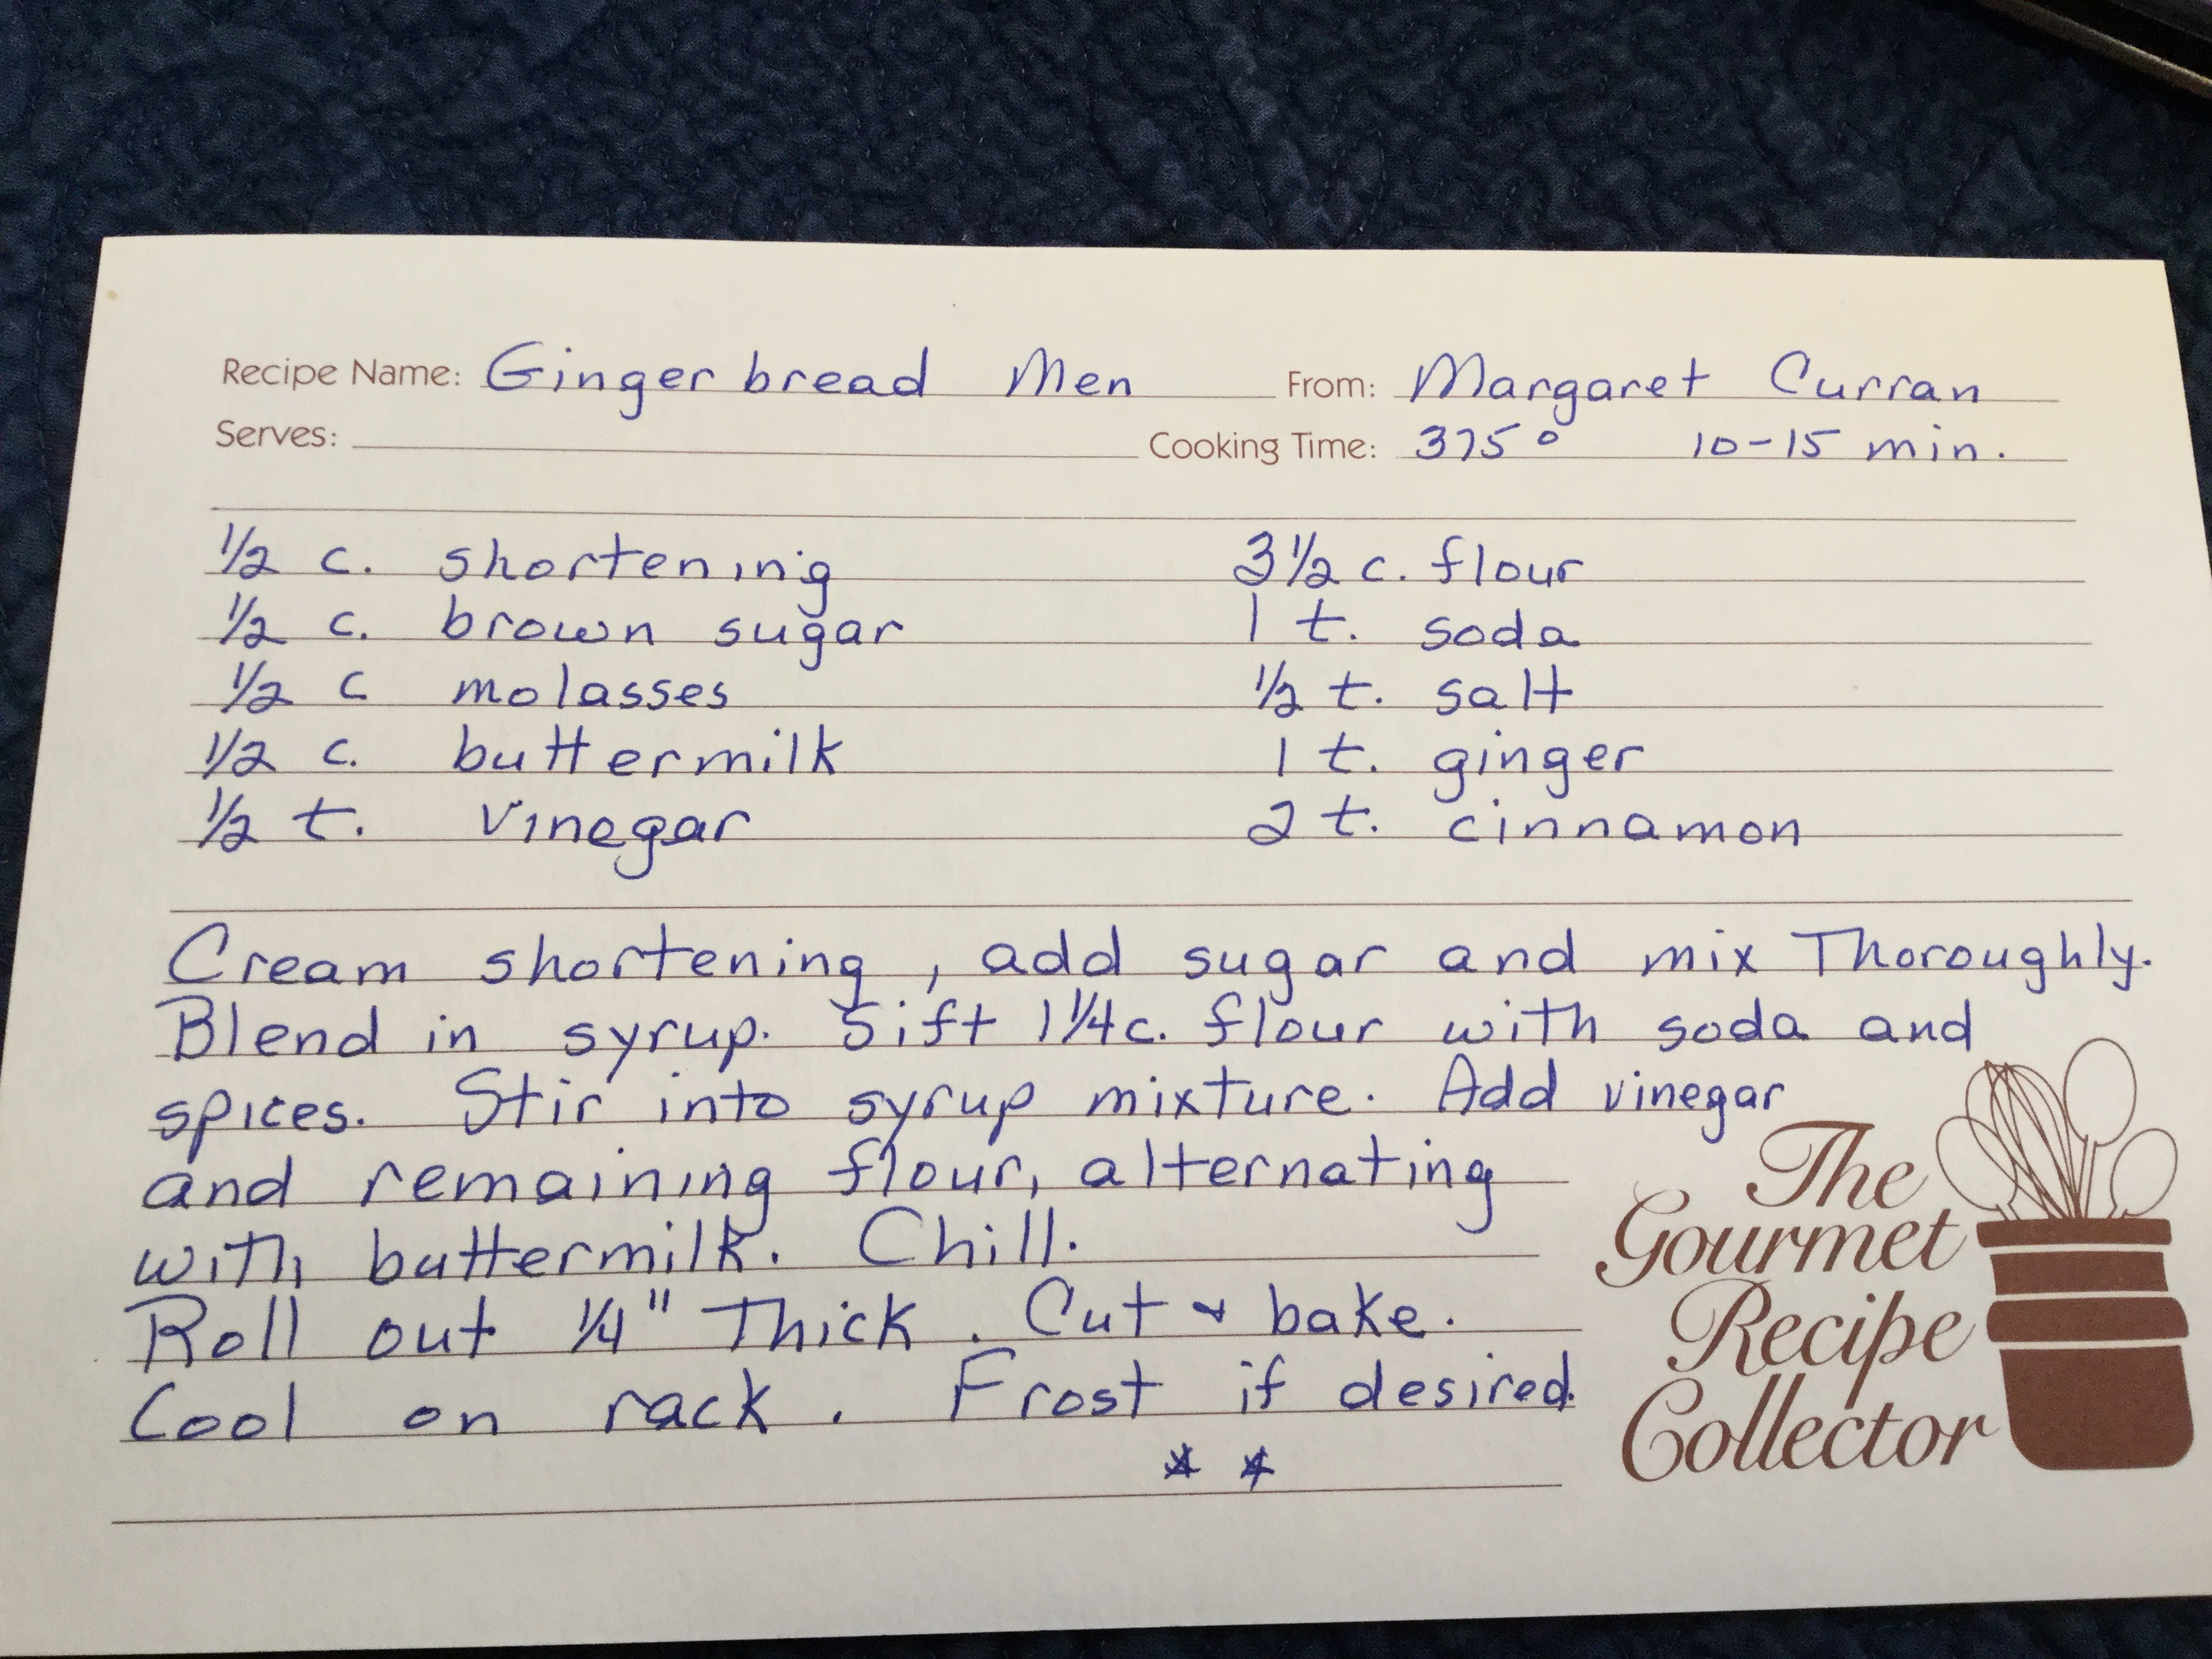 Recipe Name: Ginger bread Men From: Margaret Curran
Serves: Cooking Time: 375° 10-15 min.
1/2 c. shortening 3 1/2 c. flour
1/2 c. brown sugar 1 t. soda
1/2 c molasses 1/2 t. salt
1/2 c. buttermilk 1 t. ginger
1/2 t. vinegar 2 t. cinnamon
Cream shortening, add sugar and mix Thoroughly.
Blend in syrup. Sift 1 1/4 c. flour with soda and
spices. Stir into syrup mixture. Add vinegar
and remaining flour, alternating
with buttermilk. Chill.
Roll out 1/4" Thick. Cut & bake.
Cool on rack. Frost if desired.
* *
The
Gourmet
Recipe
Collector